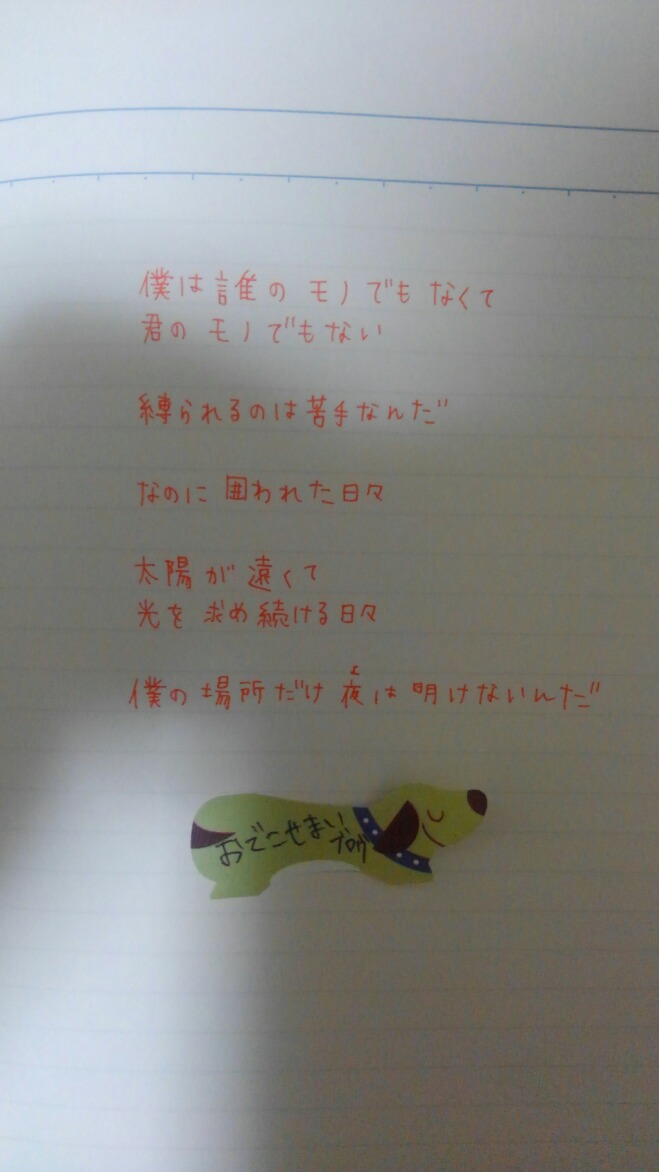 僕は誰のモノでもなくて
君のモノでもない
縛られるのは苦手なんだ
なのに囲われた日々
太陽が遠くて
光を求め続ける日々
よ
僕の場所だけ夜は明けないんだ
おでこせまい
ブログ